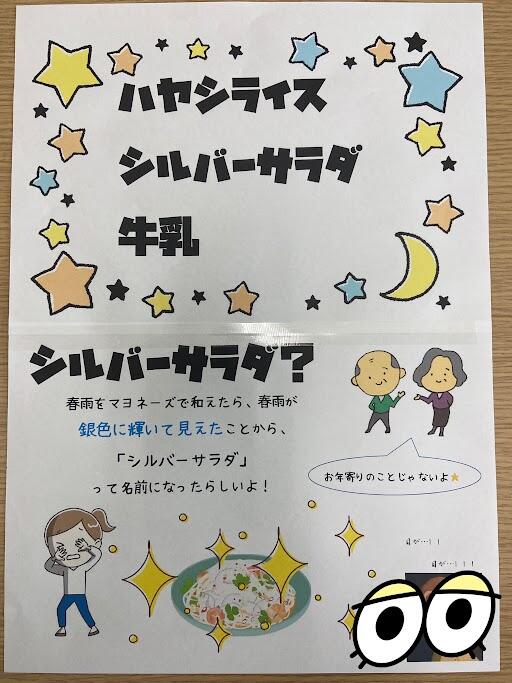 ハヤシライス
シルバーサラダ
牛乳
シルバーサラダ?
春雨をマヨネーズで和えたら、春雨が
銀色に輝いて見えたことから、
「シルバーサラダ」
って名前になったらしいよ!
お年寄りのことじゃないよ⭐
目が…!!
目が…!!!